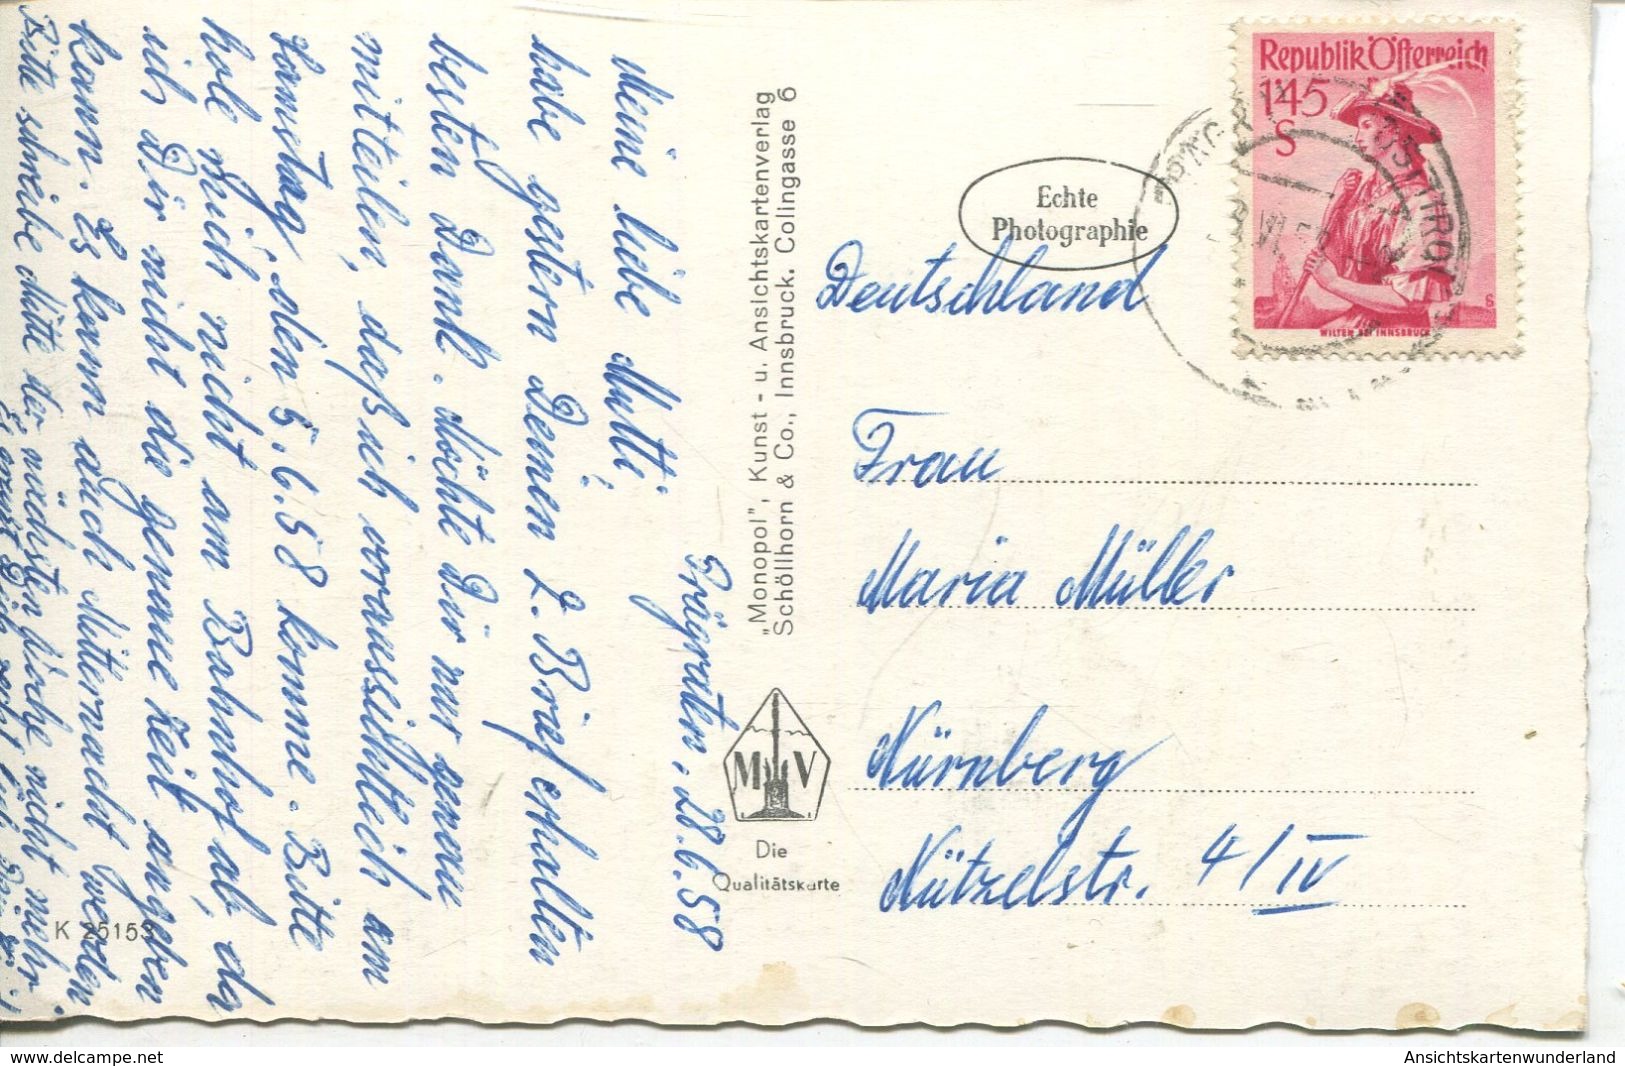 Prägraten, 28.6.58
Meine liebe Mutti!
habe gestern Deinen 2. Brief erhalten
besten Dank. Möchte Dir nur genau
mitteilen, daß ich voraussichtlich am
Samstag, den 5.6.58 komme. Bitte
hole mich nicht am Bahnhof ab, da
ich Dir nicht die genaue Zeit angeben
kann. Es kann auch Mitternacht werden
Bitte schreibe Mitte der nächsten Woche nicht mehr.
„Monopol", Kunst - u. Ansichtskartenverlag
Schöllhorn & Co., Innsbruck. Colingasse 6
M V
Die
Qualitätskarte
K 25153
Echte
Photographie
Republik Österreich
1'45
S
WILTEN BEI INNSBRUCK
6
OSTTIROL
Deutschland
Frau
Maria Müller
Nürnberg
Nützelstr. 4/IV
delcampe.net
Ansichtskartenwunderland